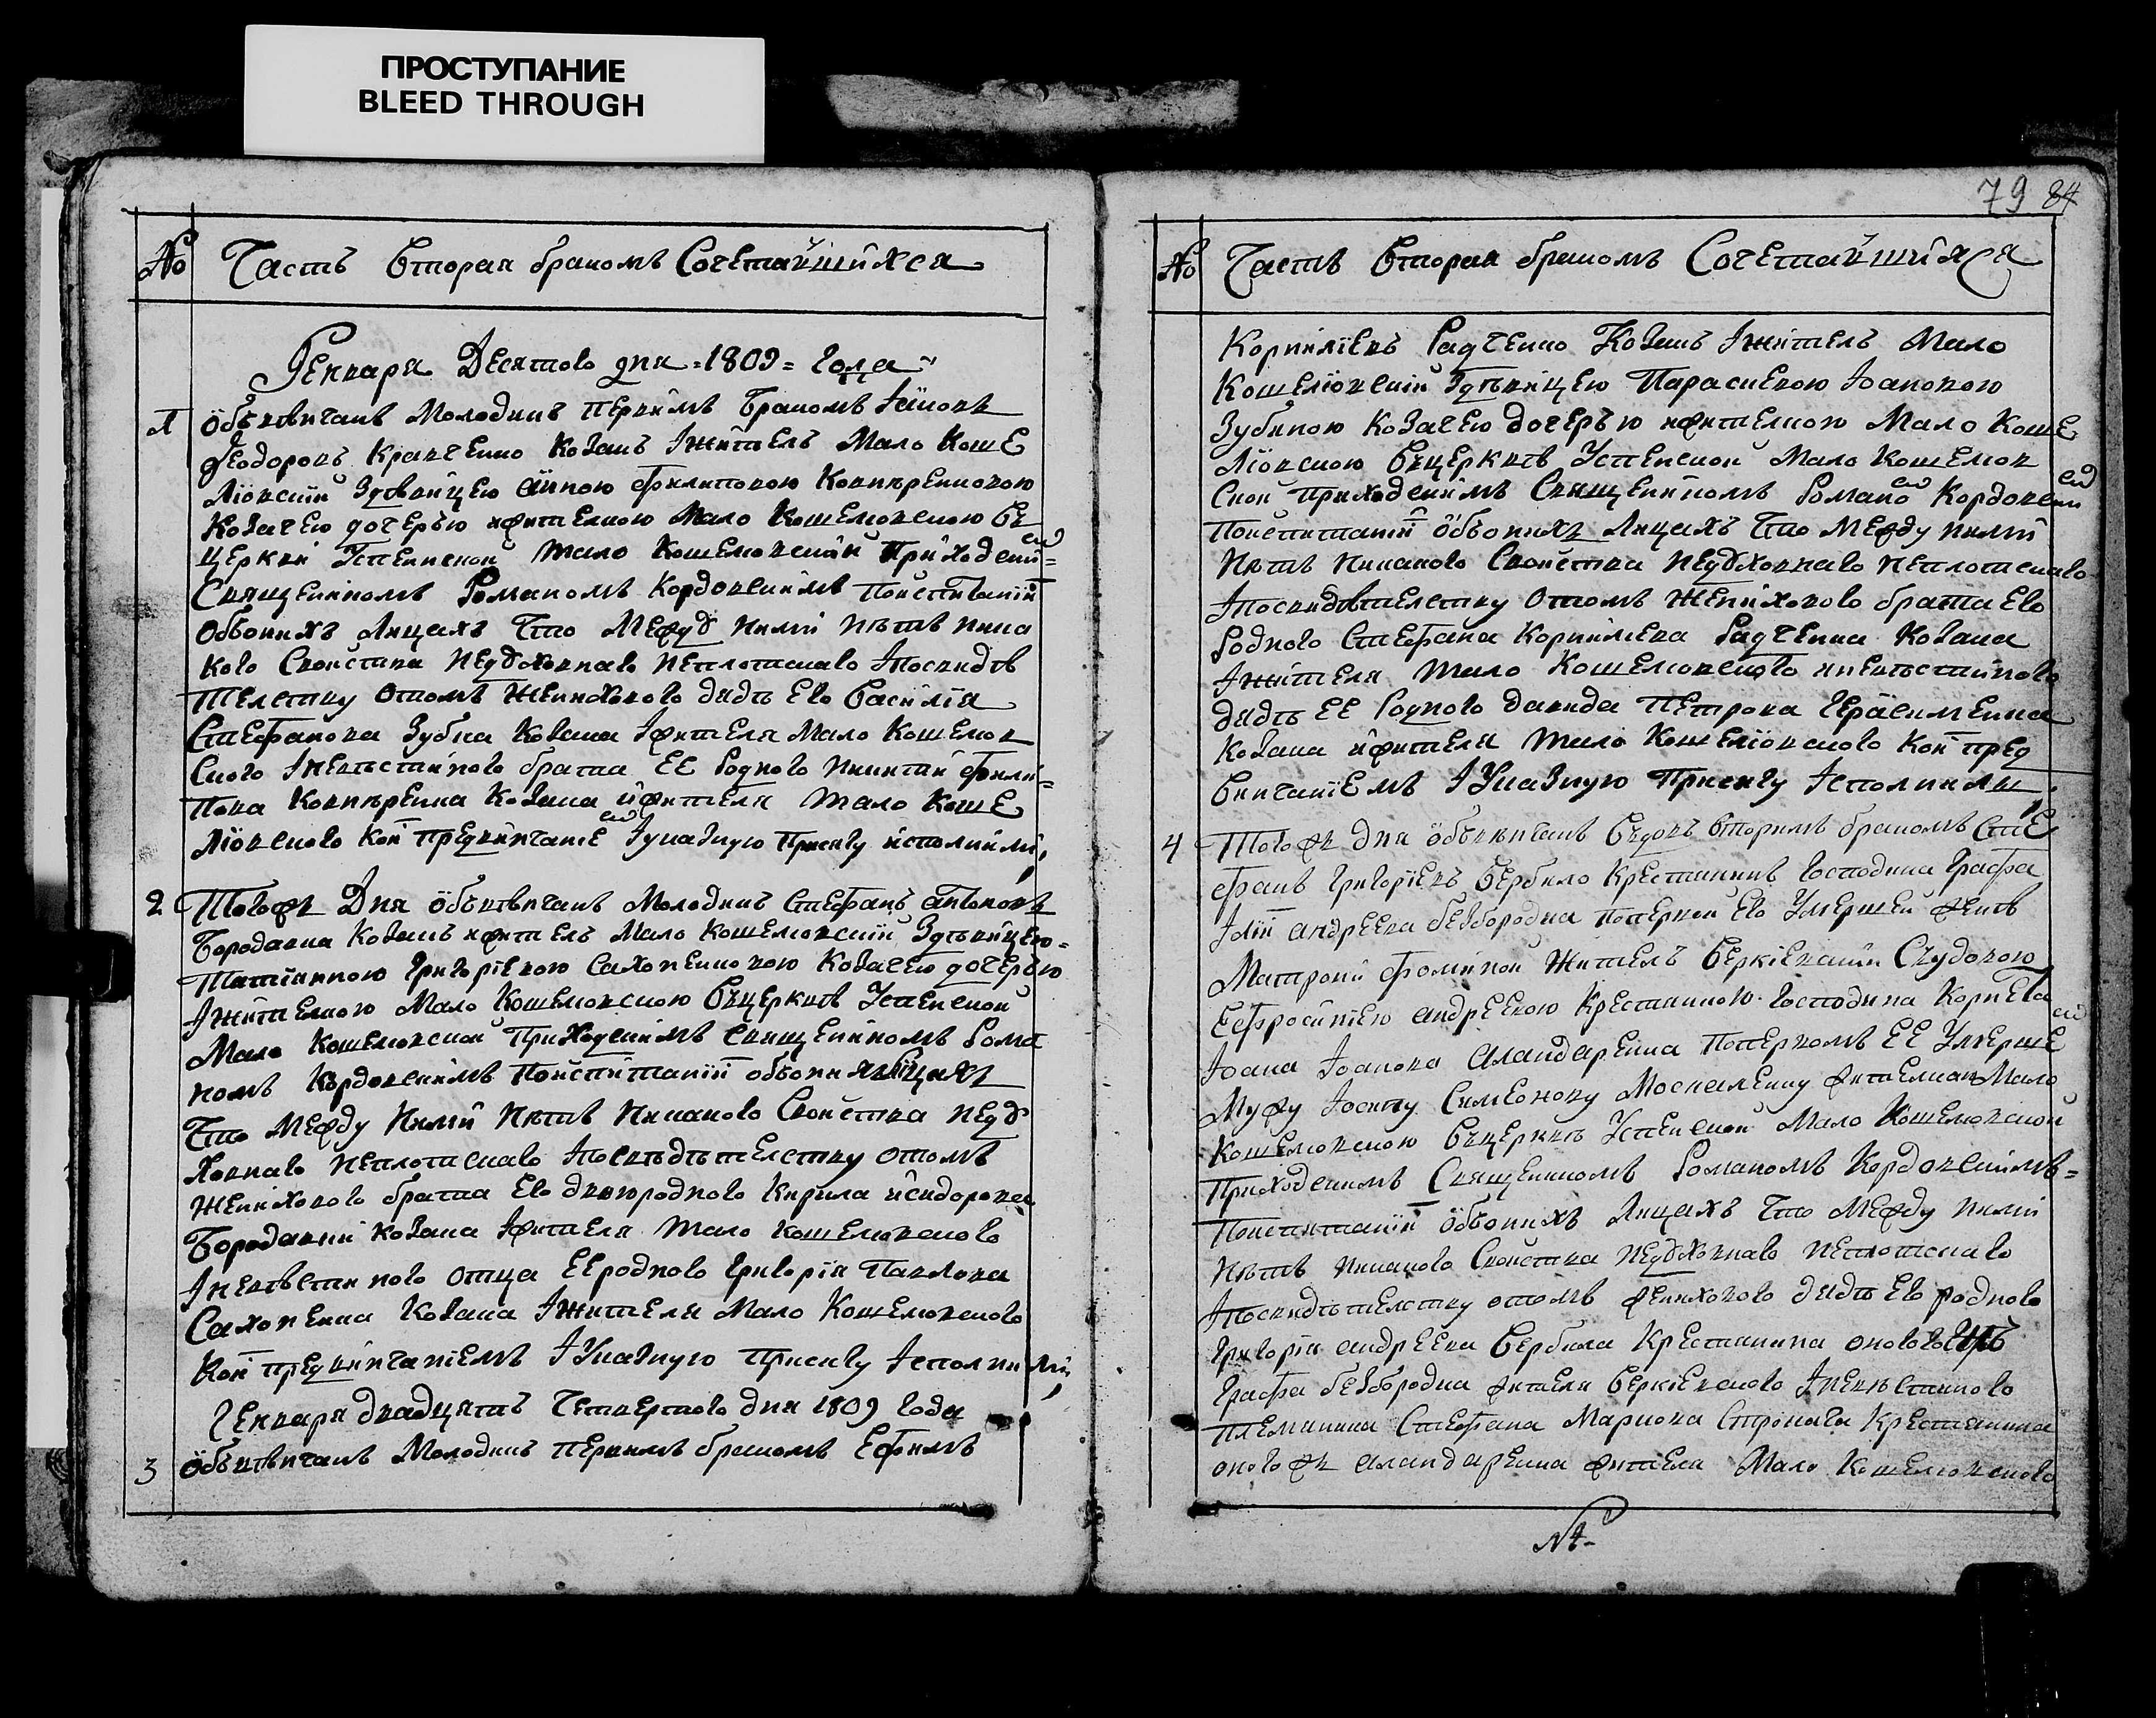 ПРОСТУПАНИЕ
BLEED THROUGH
№ Часть вторая бракомъ Сочетавшийхся
Генваря Десятого дня =1809= года
1 обвѣнчанъ Молодикъ первимъ бракомъ
Феодоровъ Кравченко Козакъ Iжитель Мало Коше
люовский Здѣвицею анною Филиповою
Козачею дочерью жителкою Мало Кошелювскою въ
церкви Успенской Мало Кошелювской Приходским
Священикомъ Романомъ Кордовскимъ Поиспитаній
обоонихъ Лицахъ Что Между ними нѣтъ ника
кого Свойства недуховнаго неплотскаго Iпосвидѣ
телству отомъ женихового дядѣ его василiа
Стефанова Зубка Козака Iжителя Мало Кошелюв
ского Iневѣстиного брата ЕЕ родного никити Фили
пова Козака ижителя Мало Коше
люовского Кои предвинчание Iуказную Присягу исполнили,
2 Тогожъ Дня обвѣнчанъ Молодикъ Стефанъ антоновъ
Бородавка Козакъ ижитель Мало Кошелювский Здѣвицею
Татiанною Григорiевою Сахоненковою Козачею дочерью
Iжителкою Мало Кошелювскою Въцерквѣ Успенской
Мало Кошелювской Приходскимъ священикомъ Рома
номъ Кордовскимъ Поиспитанiй обоонихъ лицахъ
Что Между Ними Нѣтъ Никакого Свойства неду
ховнаго неплотскаго Iпосвѣдѣтелству отомъ
женихового брата Его двоюродного Кирила исидорова
Бородавки Козака Iжителя Мало кошелювского
Iневѣстиного отца ЕЕродного Григорiя Павлова
Сахоненка Козака Iжителя Мало Кошелювского
Кои предвинчанiемъ IУказную Присягу Iсполнили,
Генваря двадцять Четвертого дня 1809 года
3 обвѣнчанъ Молодикъ первимъ бракомъ Ефимъ
79 84
№ Часть вторая бракомъ Сочетавшийхся
Корнилiевъ Радченко Козакъ Iжитель Мало
Кошелiовский Здѣвицею Параскевою Iоановою
Зубкною Козачею дочерью ижителкою Мало Коше
люовскою Въцерквѣ Успенской Мало Кошелюв
ской Приходскимъ Священикомъ Романо Кордовским
Поиспитаній обоонихъ Лицахъ Что Между ними
Нѣтъ Никакого Свойства недуховнаго неплотскаго
Iпосвидѣтелству отомъ женихового брата его
родного Стефана Корнилiева Радченка Козака
Iжителя Мало Кошелювского иневѣстиного
дядѣ ЕЕ родного давида Петрова Герасименка
Козака ижителя Мало Кошелiовского Кои пред
винчанiемъ IУказную Присягу Iсполнили.
4 Тогожъ дня обвѣнчанъ Вдовъ вторимъ бракомъ Сте
фанъ Григорiевъ Вербило Крестянинъ господина Графа
Iлiи андреева безбородка поперкой его Умершей женѣ
Матрони Фоминой Житель Веркiевский Свдовою
Ефросинiею андреевою Крестянкою господина Корнета
Iоана Iоанова Паландаренка Поперкомъ ЕЕ Умерше
Мужу Iосипу Симеонову Москаленку жителкою Мало
Кошелювскою Въцерквѣ Успенской Мало Кошелювской
Приходскимъ Священикомъ Романомъ Кордовскимъ
Поиспитаній обоонихъ Лицахъ Что Между ними
Нѣтъ Никакого Свойства недуховнаго неплотскаго
Iпосвидѣтелству отомъ женихового дядѣ Его родного
Григорiя андреева Вербила Крестянина оного
Графа безбородка жителя веркiевского Iневѣстиного
племяника Стефана Маркова Крестянина
оногожъ жителя Мало Кошелювского
№ 4